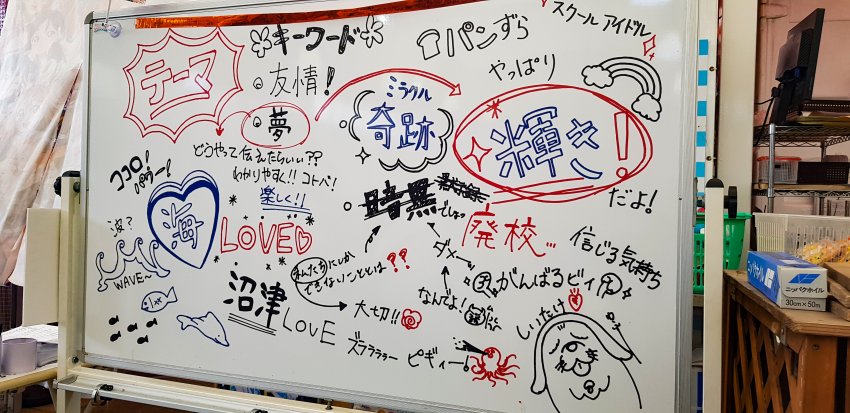 スクールアイドル
キーワード
パンずら
テーマ
友情!
やっぱり
ミラクル
奇跡
夢
輝き!
どうやって伝えたらいい??
わかりやすく!!コトバ!
楽しく!!
ココロ!
パワー!
だよ!
暗黒でしょ
海
LOVE
廃校...
信じる気持ち
波?
WAVE~
ダメーッ
私たちにしか
できないことといは??
がんばるビィ
沼津
LOVE
大切!!
なんでよ!
しいたけ
ズラララァー
ピギィー!
ニッパクホイル
30cm×50m